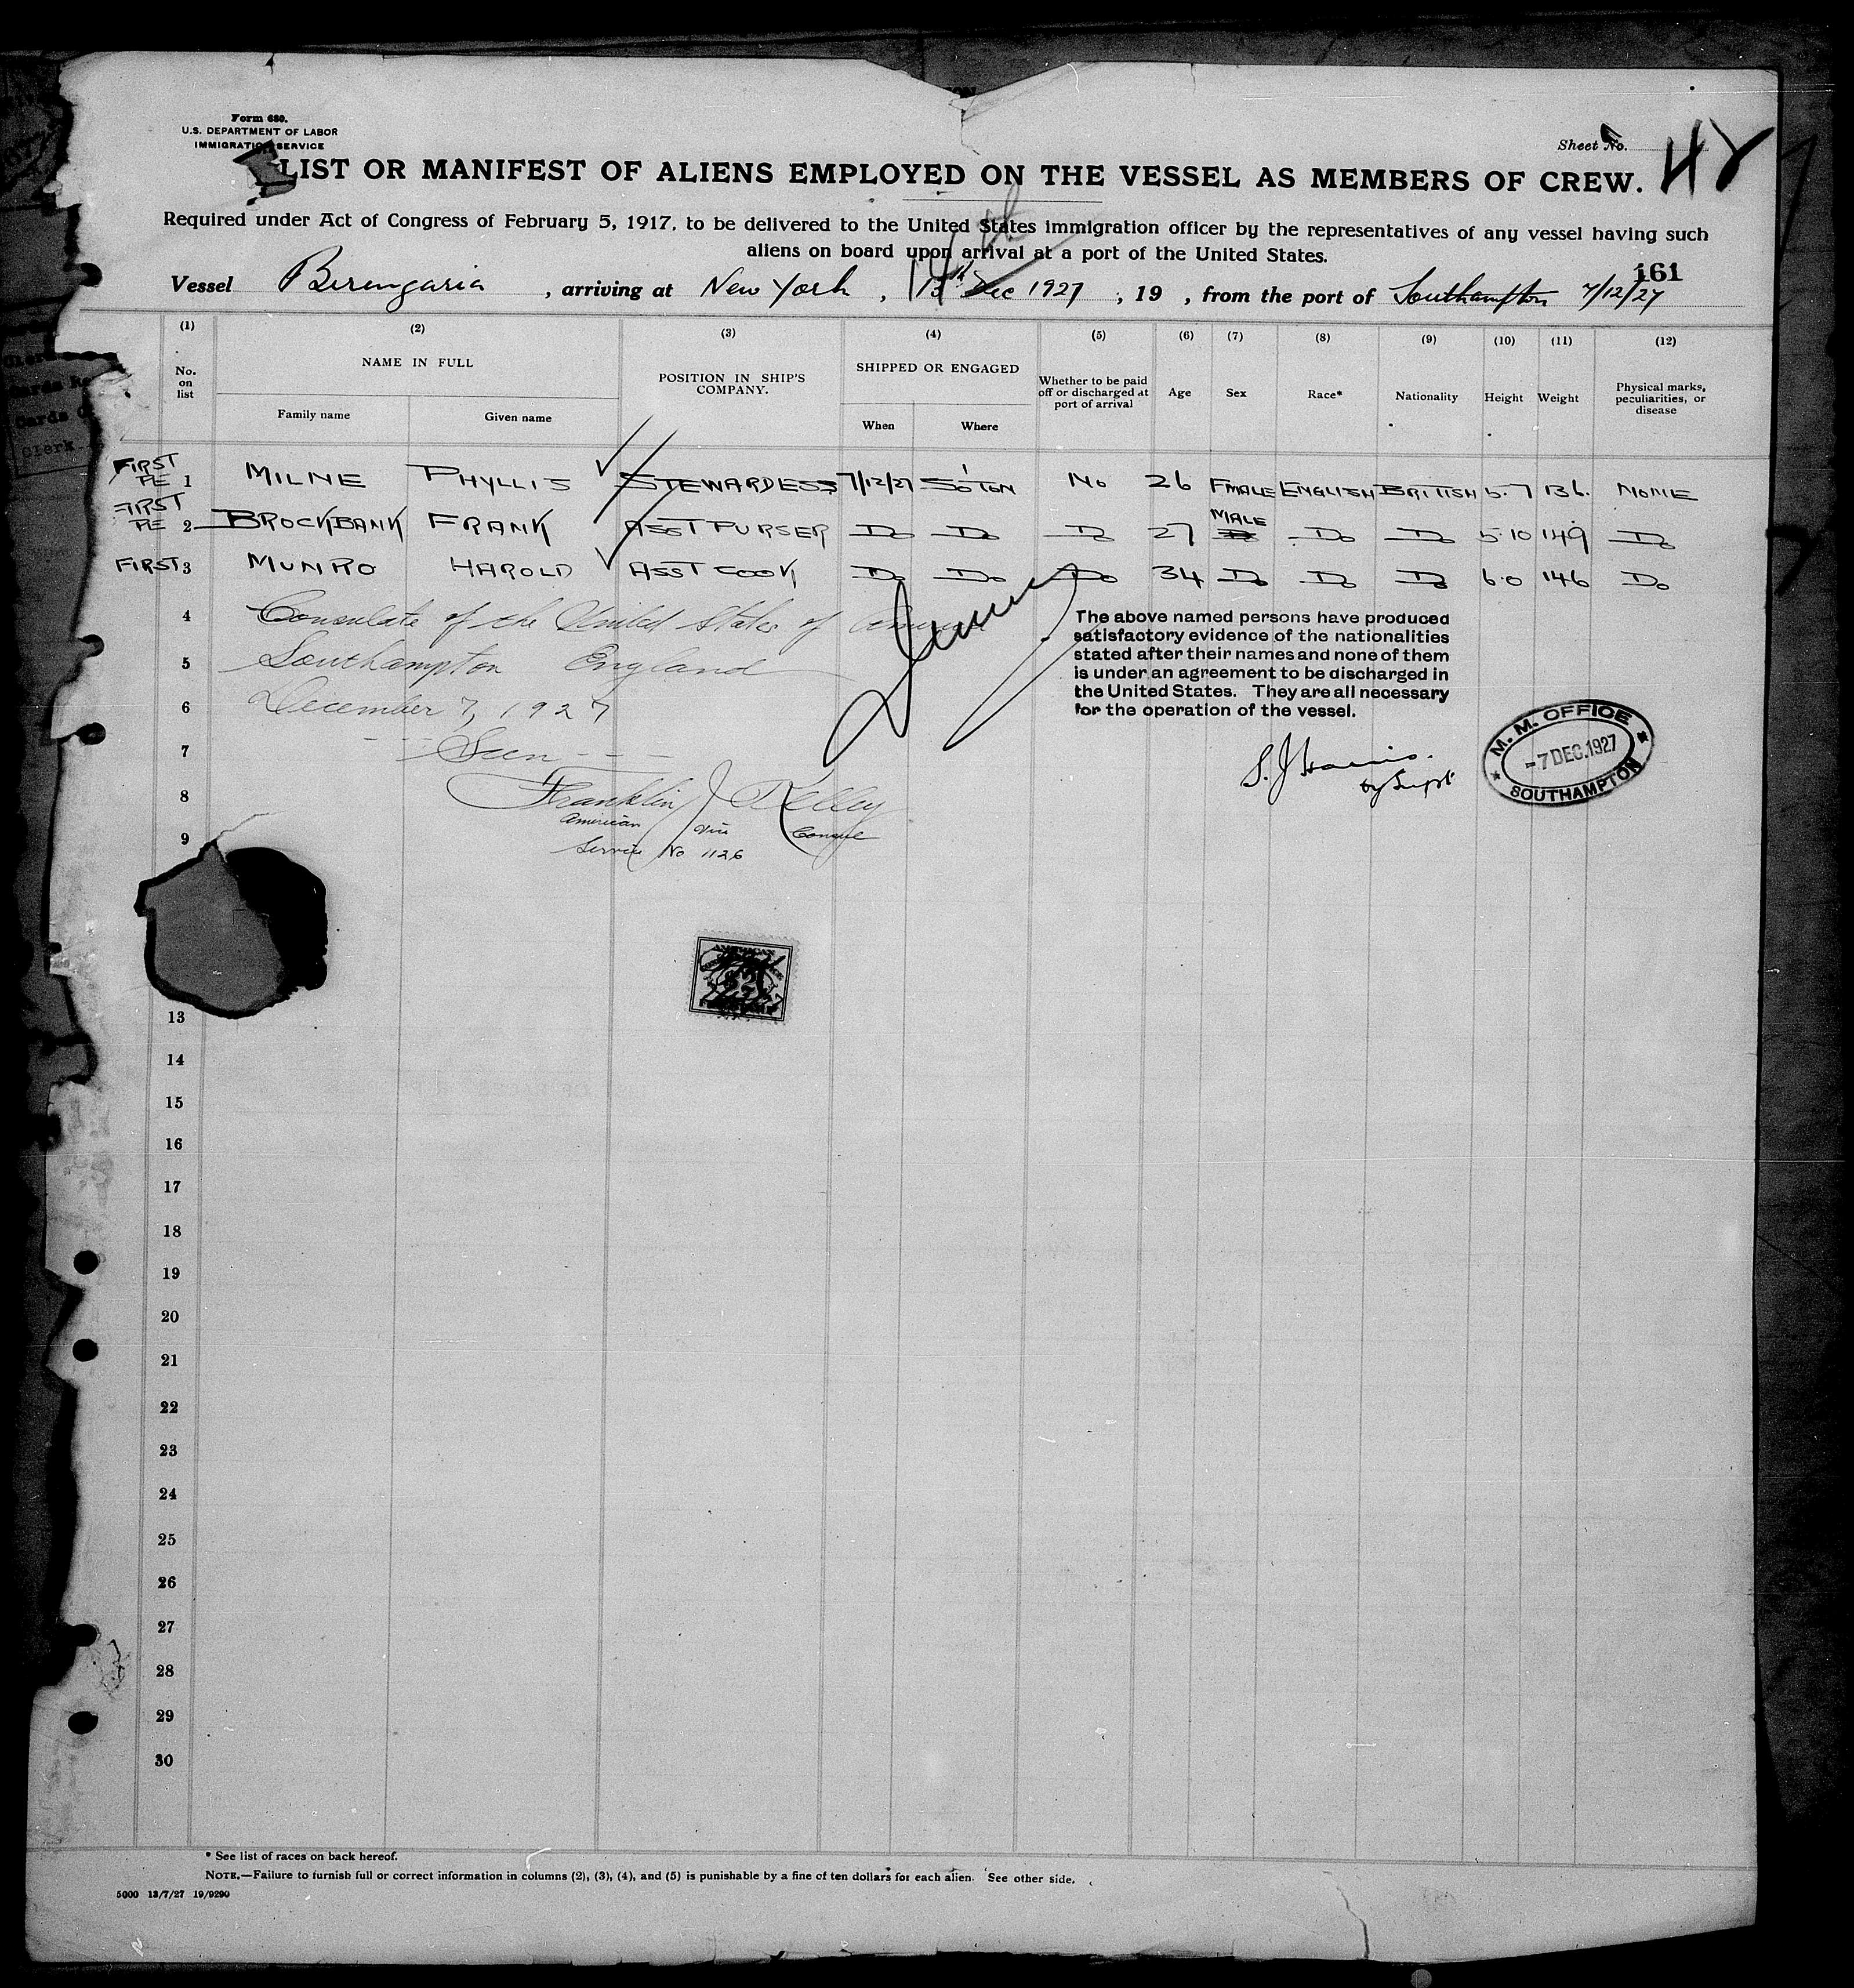 Form 680.
U.S. DEPARTMENT OF LABOR
IMMIGRATION SERVICE
Sheet No.
48
LIST OR MANIFEST OF ALIENS EMPLOYED ON THE VESSEL AS MEMBERS OF CREW.
Required under Act of Congress of February 5, 1917, to be delivered to the United States immigration officer by the representatives of any vessel having such
aliens on board upon arrival at a port of the United States.
161
Vessel Berengaria , arriving at New York , Dec 1927 , 19 , from the port of Southampton 7/12/27
(1) (2) (3) (4) (5) (6) (7) (8) (9) (10) (11) (12)
No. on list NAME IN FULL POSITION IN SHIP'S COMPANY. SHIPPED OR ENGAGED Whether to be paid off or discharged at port of arrival Age Sex Race* Nationality Height Weight Physical marks, peculiarities, or disease
Family name Given name When Where
FIRST PE 1 MILNE PHYLLIS STEWARDESS 7/12/27 SO'TON NO 26 FMALE ENGLISH BRITISH 5.7 136. NONE
FIRST PE 2 BROCKBANK FRANK ASST PURSER Do Do Do 27 MALE Do Do 5.10 149 Do
FIRST 3 MUNRO HAROLD ASST COOK Do Do Do 34 Do Do Do 6.0 146 Do
4 Consulate of the United States of America
5 Southampton England
6 December 7, 1927
7 Seen
8 Franklin J Kelley
American Vice Consul
9
Service No 1126
The above named persons have produced
satisfactory evidence of the nationalities
stated after their names and none of them
is under an agreement to be discharged in
the United States. They are all necessary
for the operation of the vessel.
S. J Harris.
M. M. OFFICE
-7 DEC.1927
SOUTHAMPTON
AMERICAN
$2
13
14
15
16
17
18
19
20
21
22
23
24
25
26
27
28
29
30
* See list of races on back hereof.
NOTE.—Failure to furnish full or correct information in columns (2), (3), (4), and (5) is punishable by a fine of ten dollars for each alien. See other side.
5000 13/7/27 19/9290